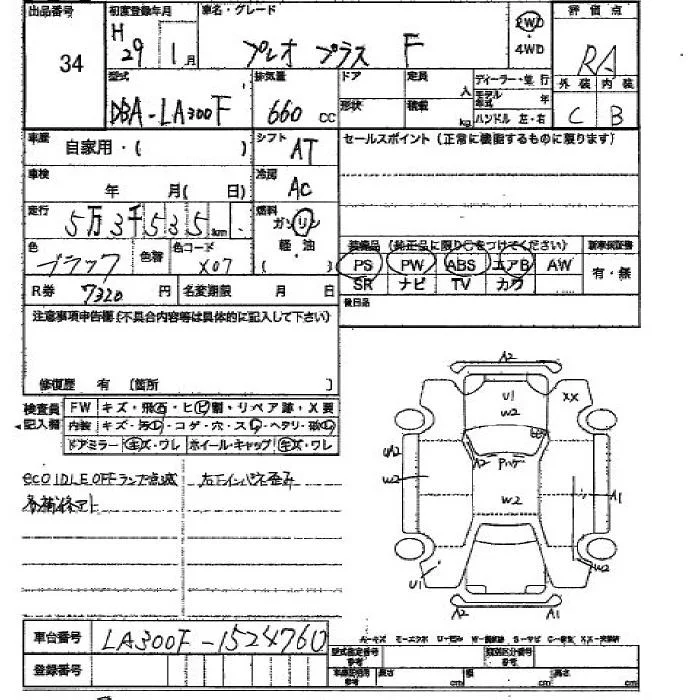 出品番号 初度登録年月 車名・グレード 評価点
34 H29 1月 プレオ プラス F 2WD ・ 4WD RA
型式 排気量 ドア 定員 人 ディーラー・並行 外装 内装
DBA-LA300F 660 CC 形状 積載 kg モデル年式 年 ハンドル 左・右 C B
車歴 自家用・( ) シフト AT セールスポイント (正常に機能するものに限ります)
車検 年 月( 日) 冷房 AC
走行 5万3千535km 燃料 ガソリン
色 ブラック 色替 色コード X07 軽・油 ( )
装備品 (純正品に限り○をつけてください) 新車保証書
PS PW ABS エアB AW 有・無
SR ナビ TV カワ
R券 7320 円 名変期限 月 日 後日品
注意事項申告欄(不具合内容等は具体的に記入して下さい)
修復歴 有 〔箇所 〕
検査員記入欄 FW キズ・飛石・ヒビ割・リペア跡・X要
内装 キズ・汚れ・コゲ・穴・スレ・ヘタリ・
ドアミラー キズ・ワレ ホイール・キャップ キズ・ワレ
eco IDLE OFFランプ点滅 左下インパネ歪み
A2
U1 W2 XX
A2 Pハゲ
W2 W2 A1
U1 W2
A2 A1
車台番号 LA300F-1524760
登録番号
A-キズ U-凹み S-サビ XX-交換済
型式指定番号 参考 類別区分番号 参考
長さ cm 幅 cm 高さ cm